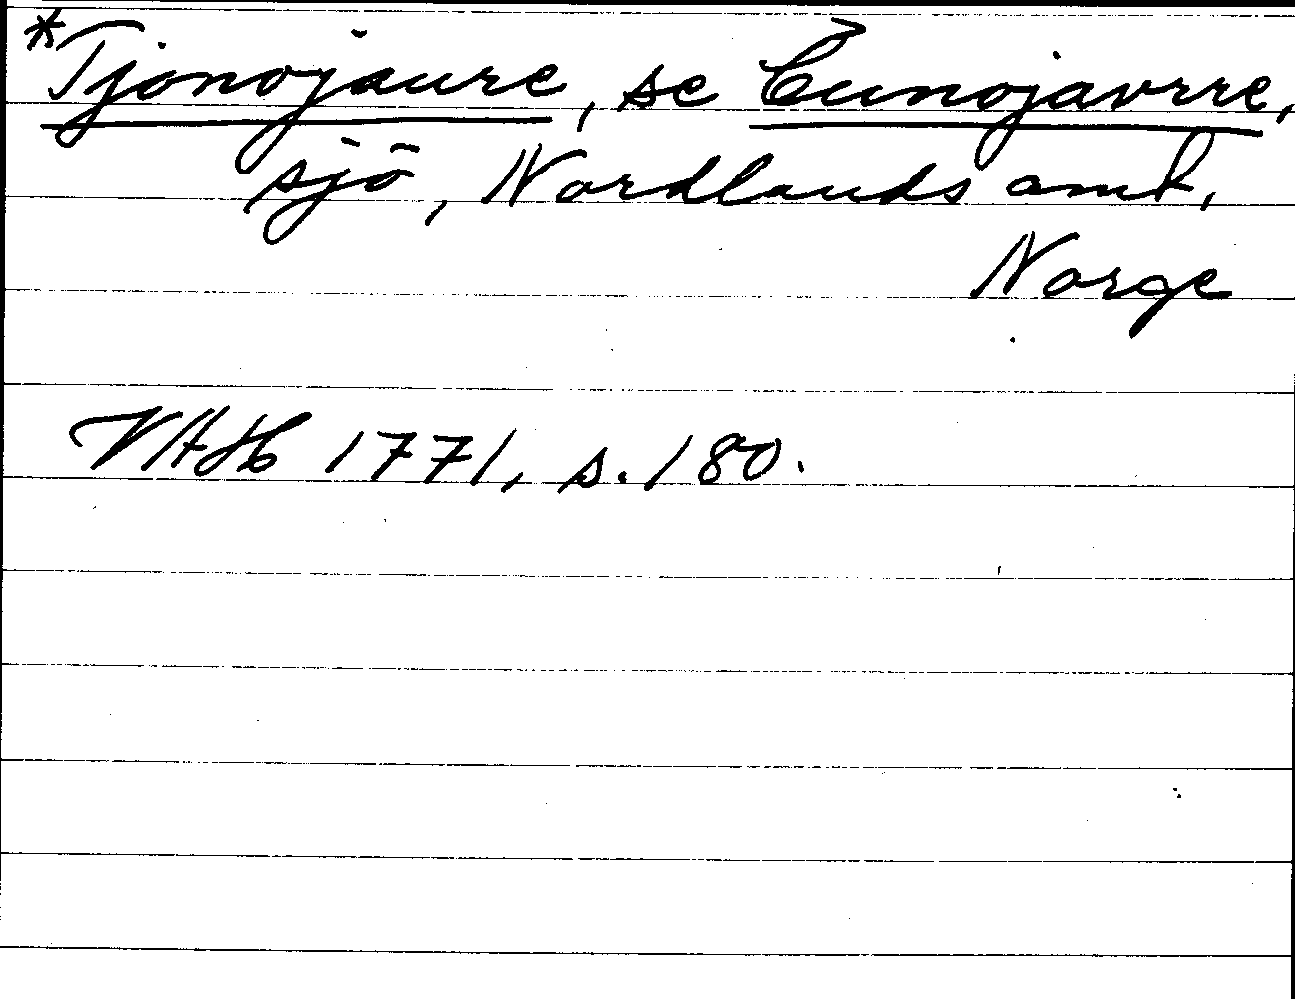 *Tjonojaure, se Čunojavrre,
sjö, Nordlands amt,
Norge
VAH 1771, s. 180.